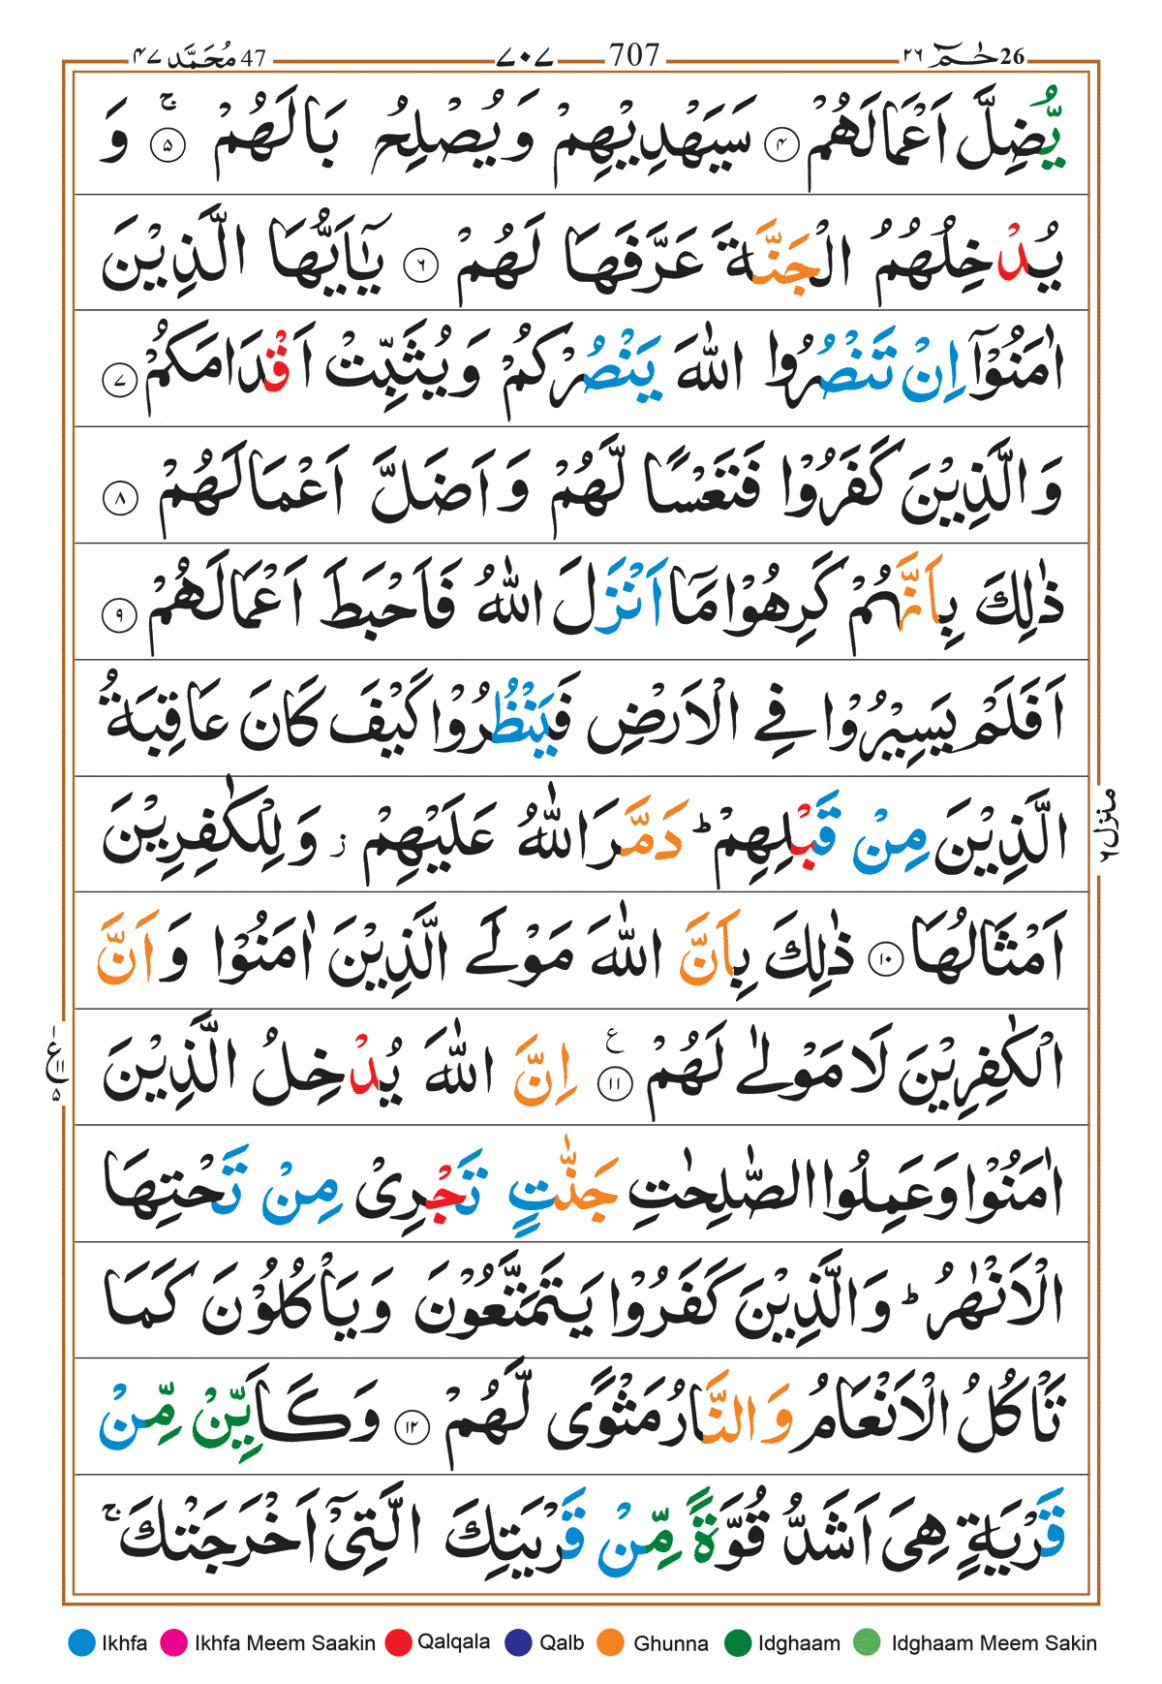 47 مُحَمَّد ٤٧
٧٠٧ 707
26 حٰمٓ ٢٦
يُّضِلَّ اَعْمَالَهُمْ ۴ سَيَهْدِيْهِمْ وَيُصْلِحُ بَالَهُمْ ۚ ۵ وَ
يُدْخِلُهُمُ الْجَنَّةَ عَرَّفَهَا لَهُمْ ۶ يٰٓاَيُّهَا الَّذِيْنَ
اٰمَنُوْٓا اِنْ تَنْصُرُوا اللّٰهَ يَنْصُرْكُمْ وَيُثَبِّتْ اَقْدَامَكُمْ ۷
وَالَّذِيْنَ كَفَرُوْا فَتَعْسًا لَّهُمْ وَاَضَلَّ اَعْمَالَهُمْ ۸
ذٰلِكَ بِاَنَّهُمْ كَرِهُوْا مَآ اَنْزَلَ اللّٰهُ فَاَحْبَطَ اَعْمَالَهُمْ ۹
اَفَلَمْ يَسِيْرُوْا فِي الْاَرْضِ فَيَنْظُرُوْا كَيْفَ كَانَ عَاقِبَةُ
الَّذِيْنَ مِنْ قَبْلِهِمْ ؕ دَمَّرَ اللّٰهُ عَلَيْهِمْ ز وَلِلْكٰفِرِيْنَ
اَمْثَالُهَا ۱۰ ذٰلِكَ بِاَنَّ اللّٰهَ مَوْلَى الَّذِيْنَ اٰمَنُوْا وَاَنَّ
الْكٰفِرِيْنَ لَا مَوْلٰى لَهُمْ ۱۱ ع اِنَّ اللّٰهَ يُدْخِلُ الَّذِيْنَ
اٰمَنُوْا وَعَمِلُوا الصّٰلِحٰتِ جَنّٰتٍ تَجْرِيْ مِنْ تَحْتِهَا
الْاَنْهٰرُ ؕ وَالَّذِيْنَ كَفَرُوْا يَتَمَتَّعُوْنَ وَيَاْكُلُوْنَ كَمَا
تَاْكُلُ الْاَنْعَامُ وَالنَّارُ مَثْوًى لَّهُمْ ۱۲ وَكَاَيِّنْ مِّنْ
قَرْيَةٍ هِيَ اَشَدُّ قُوَّةً مِّنْ قَرْيَتِكَ الَّتِيْٓ اَخْرَجَتْكَ ۚ
منزل ۶
ع ۱۱ ۵
Ikhfa Ikhfa Meem Saakin Qalqala Qalb Ghunna Idghaam Idghaam Meem Sakin